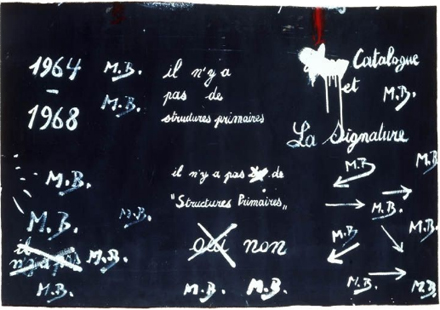 1964
-
1968
M.B.
M.B.
il n'y a
pas de
structures primaires
Catalogue
et
M.B.
La Signature
il n'y a pas de
"Structures Primaires"
oui non
M.B.
M.B.
M.B.
il
n'y a pas
M.B.
M.B.
M.B.
M.B.
M.B.
M.B.
M.B.
M.B.
M.B.
M.B.
M.B.
M.B.